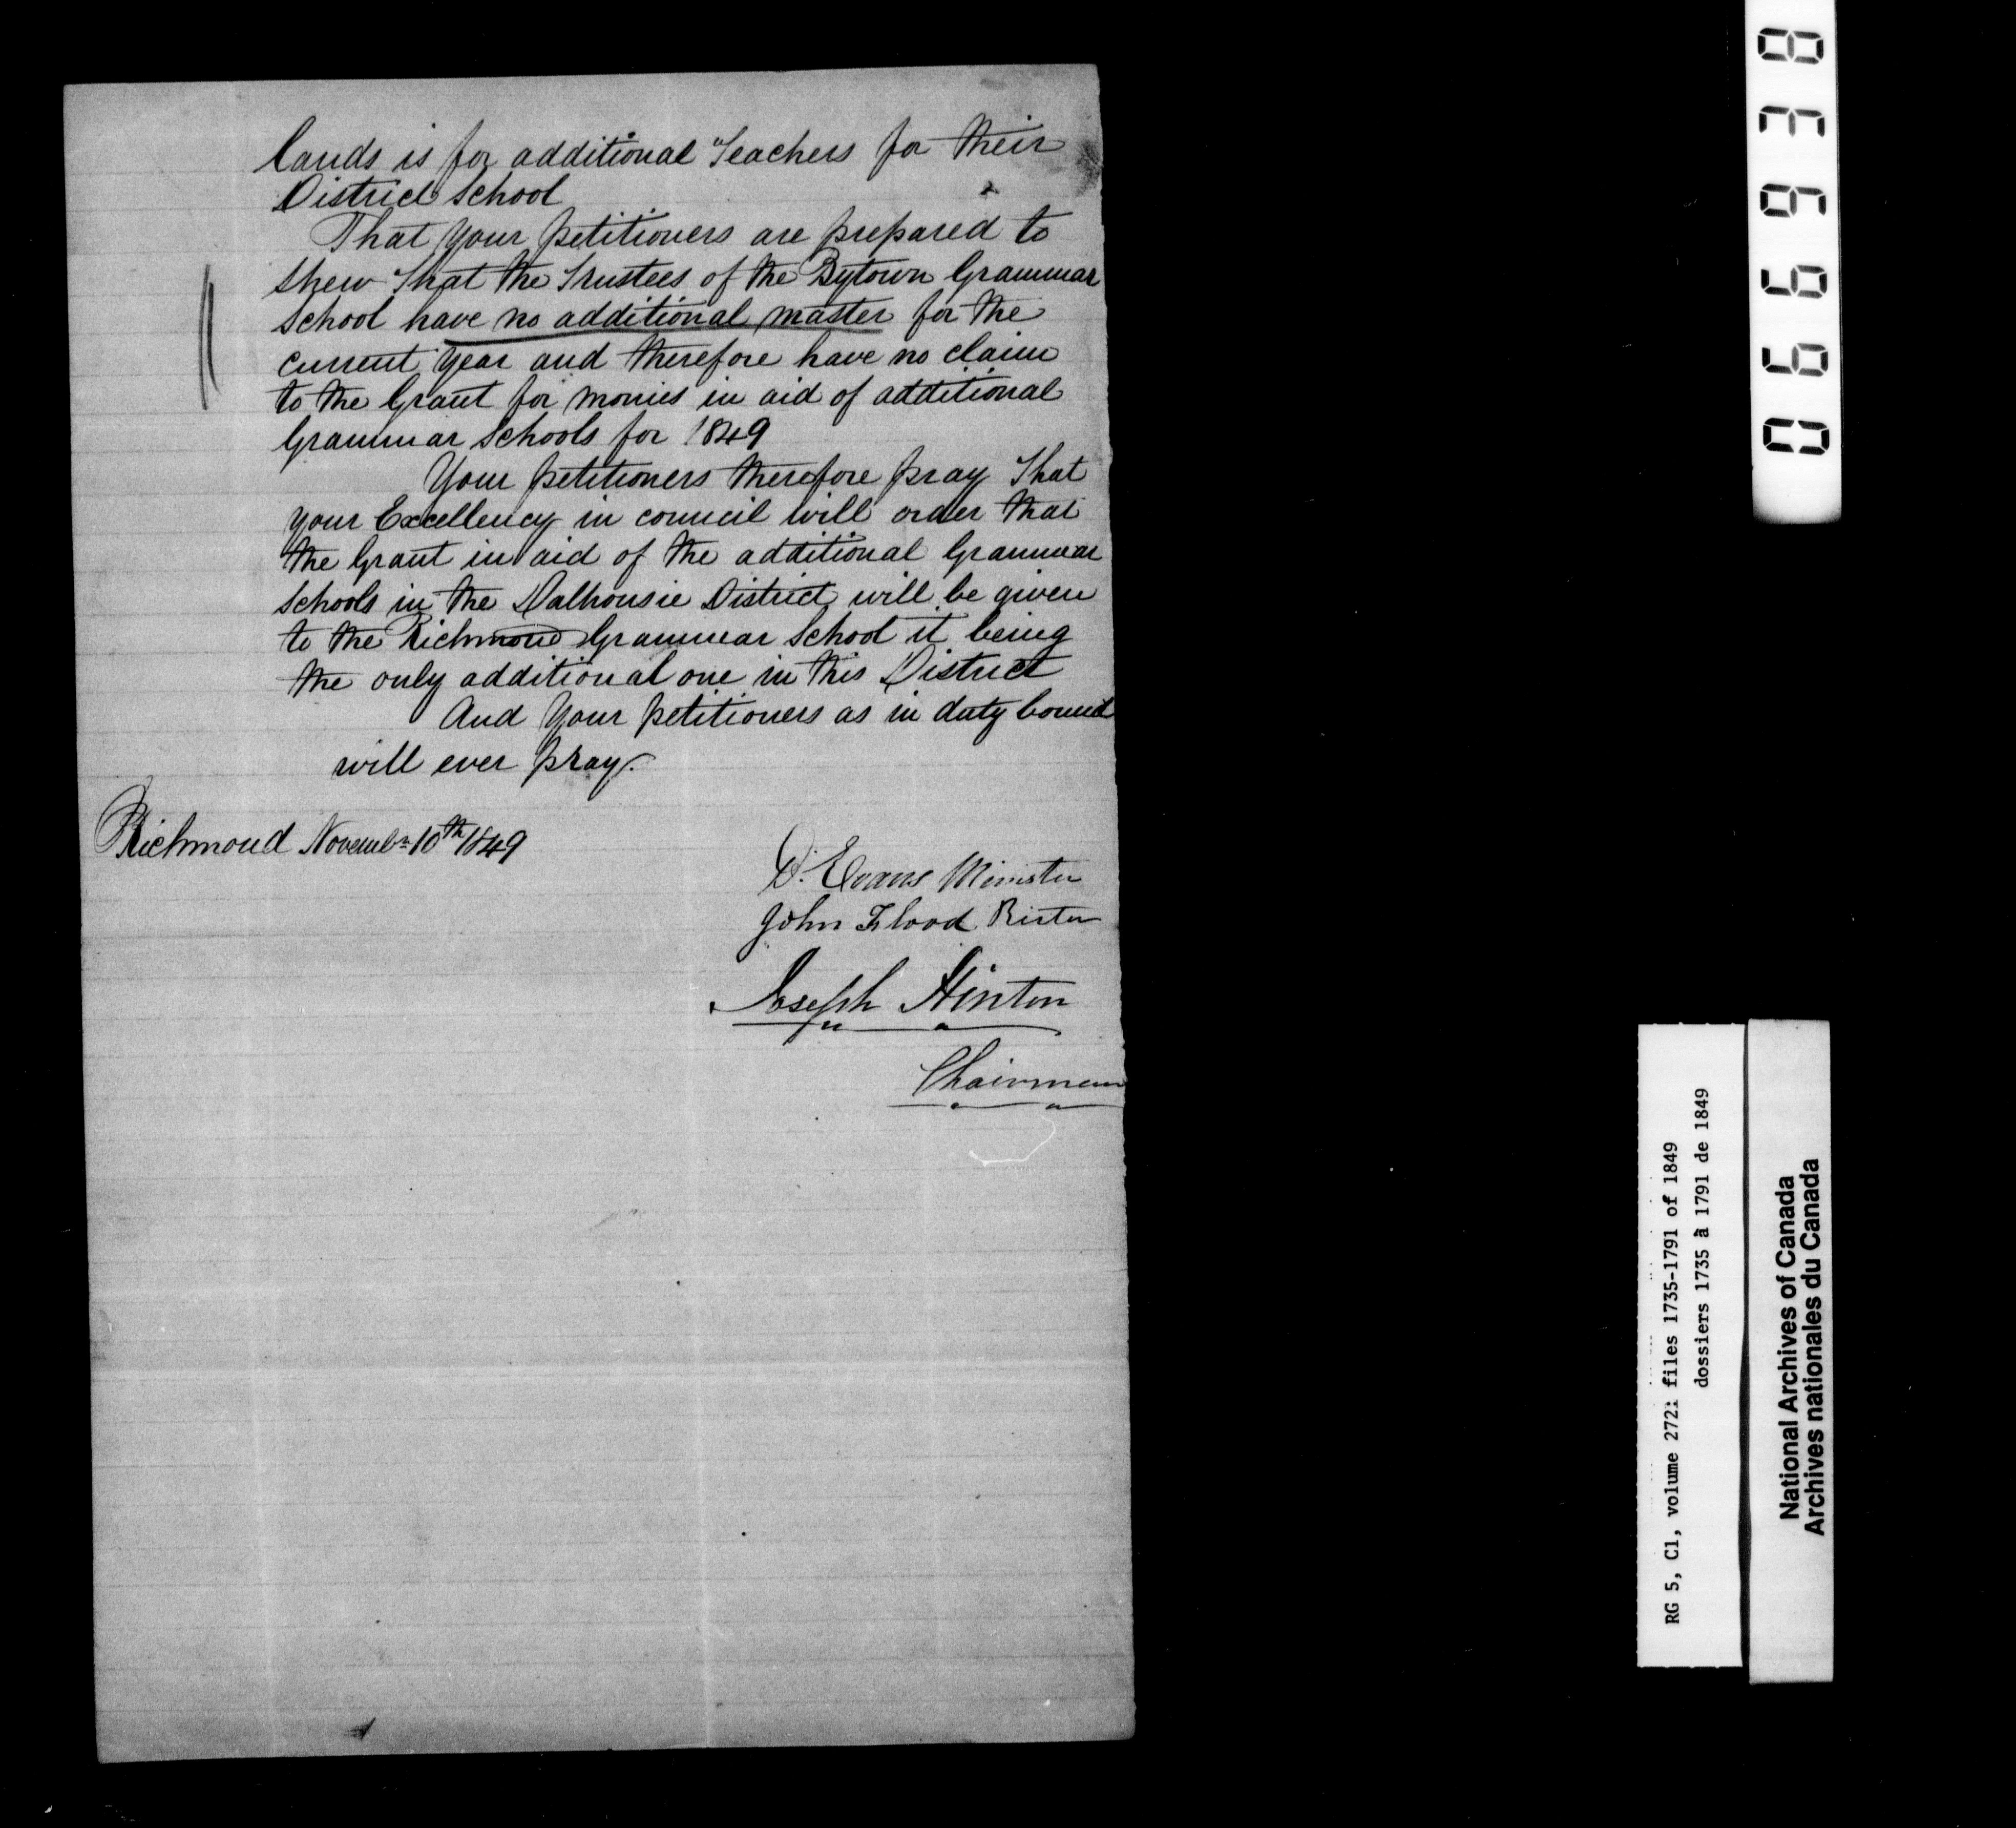 lands is for additional Teachers for their
District School
That your petitioners are prepared to
shew that the Trustees of the Bytown Grammar
School have no additional master for the
current year and therefore have no claim
to the Grant for monies in aid of additional
Grammar Schools for 1849
Your petitioners therefore pray that
your Excellency in council will order that
the Grant in aid of the additional Grammar
Schools in the Dalhousie District will be given
to the Richmond Grammar School it being
the only additional one in this District
And your petitioners as in duty bound
will ever pray.
Richmond Novembr 10th 1849
D. Evans Minister
John Flood Rector
Joseph Hinton
Chairman
066938
RG 5, C1, volume 272: files 1735-1791 of 1849
dossiers 1735 à 1791 de 1849
National Archives of Canada
Archives nationales du Canada